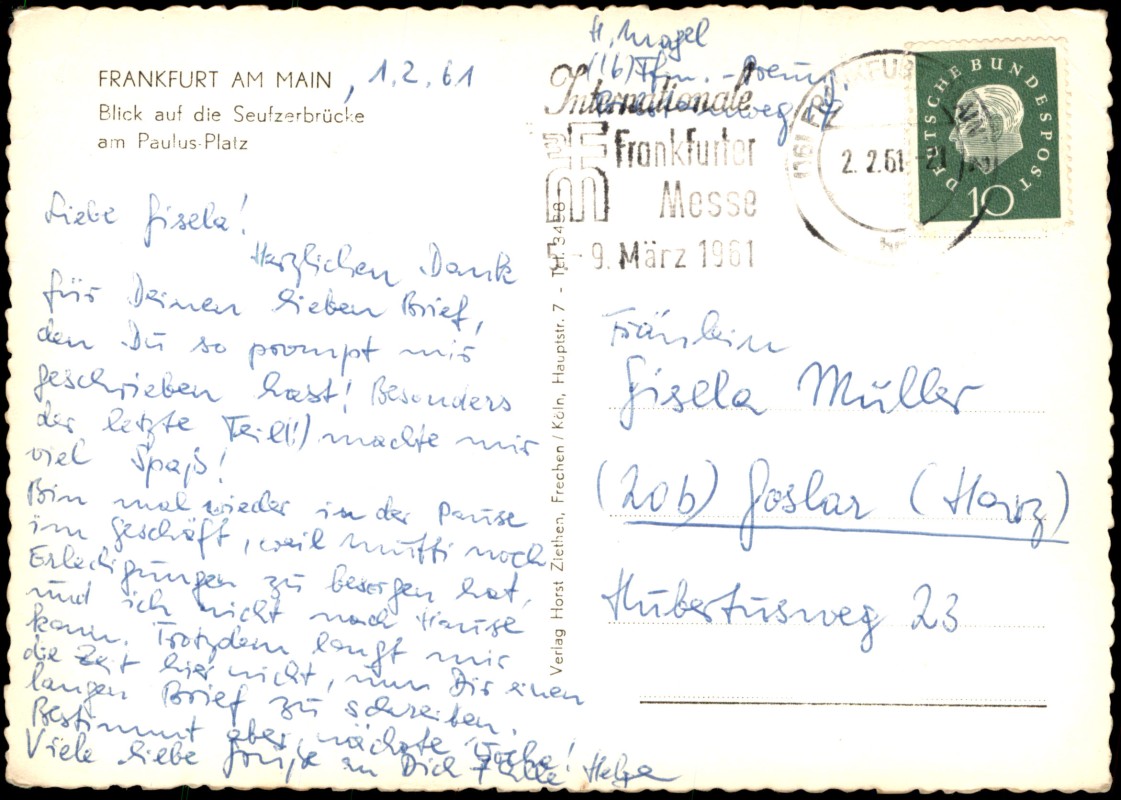 FRANKFURT AM MAIN, 1.2.61
Blick auf die Seufzerbrücke
am Paulus-Platz
Liebe Gisela!
Herzlichen Dank
für Deinen lieben Brief,
den Du so prompt mir
geschrieben hast! Besonders
der letzte Teil(!) machte mir
viel Spaß!
Bin mal wieder in der Pause
im Geschäft, weil Mutti noch
Erledigungen zu besorgen hat,
und ich nicht nach Hause
kann. Trotzdem langt mir
die Zeit hier nicht, um Dir einen
langen Brief zu schreiben.
Bestimmt aber nächste Woche!
Viele liebe Grüße an Dich + alle! Helga
Verlag Horst Ziethen, Frechen/Köln, Hauptstr. 7 - Tel. 3458
H. Nagel
(16) Ffm.
Internationale
Frankfurter
Messe
5.-9. März 1961
(16) FRANKFURT
2.2.61-21
DEUTSCHE BUNDESPOST
10
Fräulein
Gisela Müller
(20b) Goslar (Harz)
Hubertusweg 23